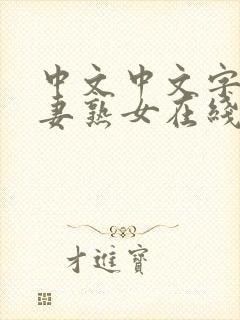 中文中文字
妻熟女在线
才进宝